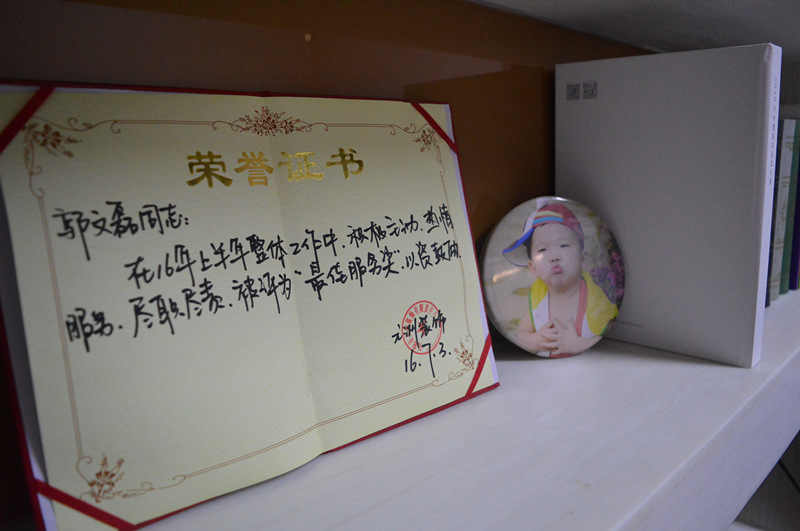 荣誉证书
郭文磊同志:
在16年上半年整体工作中、积极主动、热情
服务、尽职尽责、被评为“最佳服务奖”以资鼓励
元洲装饰
16.7.3.